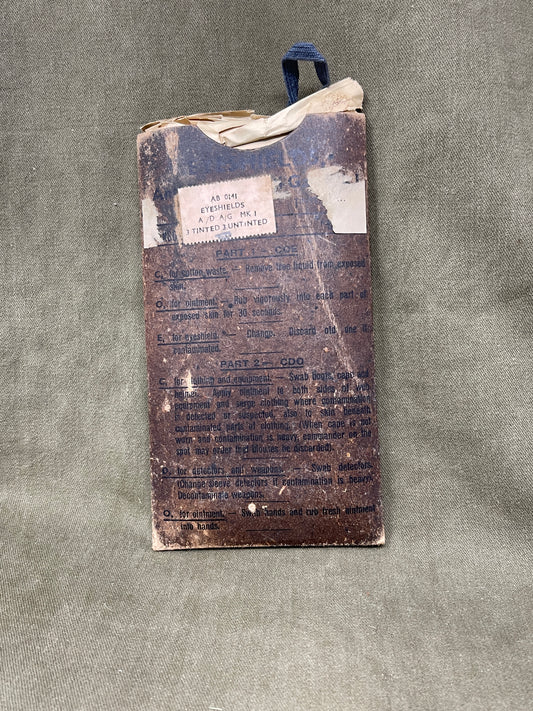 AB 0141
EYESHIELDS
A/D A/G MK I
3 TINTED 3 UNTINTED
PART 1 — COE
C. for cotton waste. — Remove free liquid from exposed
skin.
O. for ointment. — Rub vigorously into each part of
exposed skin for 30 seconds.
E. for eyeshield. — Change. Discard old one if
contaminated.
PART 2 — CDO
C. for clothing and equipment. — Swab boots, cape and
helmet. Apply ointment to both sides of web
equipment and serge clothing where contamination
is detected or suspected, also to skin beneath
contaminated parts of clothing. (When cape is not
worn and contamination is heavy, commander on the
spot may order that blouses be discarded).
D. for detectors and weapons. — Swab detectors.
(Change sleeve detectors if contamination is heavy).
Decontaminate weapons.
O. for ointment. — Swab hands and rub fresh ointment
into hands.